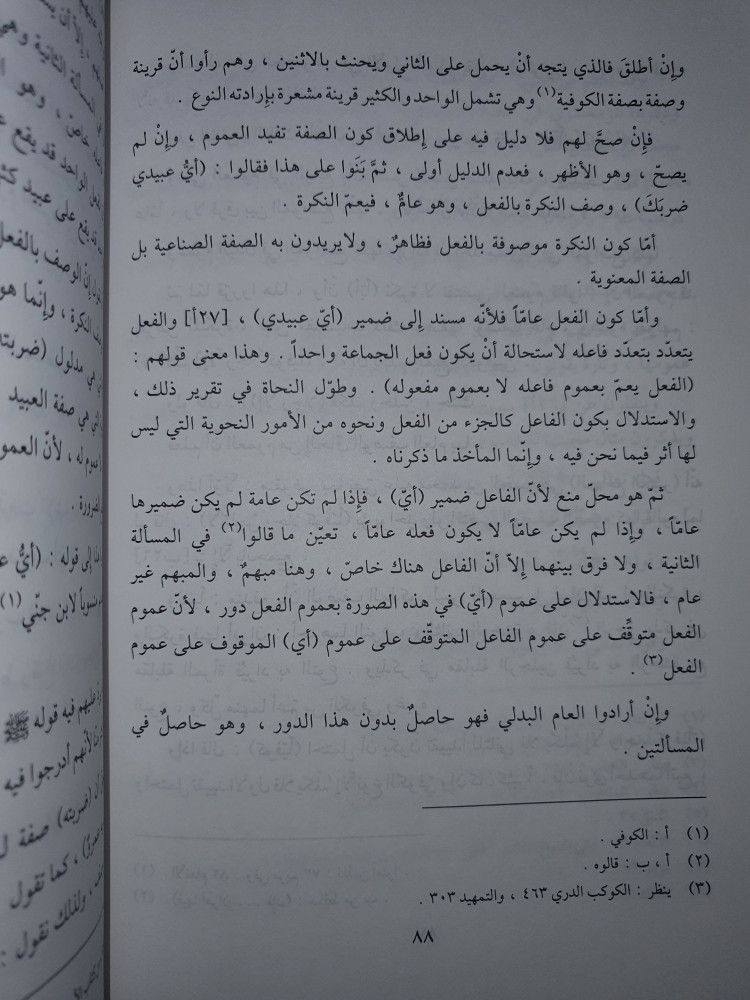 وإنْ أطلقَ فالذي يتجه أنْ يحمل على الثاني ويحنث بالاثنين ، وهم رأوا أنّ قرينة
وصفة بصفة الكوفية(١) وهي تشمل الواحد والكثير قرينة مشعرة بإرادته النوع .
فإنْ صحَّ لهم فلا دليل فيه على إطلاق كون الصفة تفيد العموم ، وإنْ لم
يصحّ ، وهو الأظهر ، فعدم الدليل أولى ، ثمَّ بَنَوا على هذا فقالوا : (أيُّ عبيدي
ضربَكَ) ، وصف النكرة بالفعل ، وهو عامٌّ ، فيعمّ النكرة .
أمّا كون النكرة موصوفة بالفعل فظاهرٌ ، ولايريدون به الصفة الصناعية بل
الصفة المعنوية .
وأمّا كون الفعل عامّاً فلأنّه مسند إلى ضمير (أيّ عبيدي) ، [٢٧أ] والفعل
يتعدّد بتعدّد فاعله لاستحالة أنْ يكون فعل الجماعة واحداً . وهذا معنى قولهم :
(الفعل يعمّ بعموم فاعله لا بعموم مفعوله) . وطوّل النحاة في تقرير ذلك ،
والاستدلال بكون الفاعل كالجزء من الفعل ونحوه من الأمور النحوية التي ليس
لها أثر فيما نحن فيه ، وإنّما المأخذ ما ذكرناه .
ثمّ هو محلّ منع لأنّ الفاعل ضمير (أيّ) ، فإذا لم تكن عامة لم يكن ضميرها
عامّاً ، وإذا لم يكن عامّاً لا يكون فعله عامّاً ، تعيّن ما قالوا(٢) في المسألة
الثانية ، ولا فرق بينهما إلاّ أنّ الفاعل هناك خاصّ ، وهنا مبهمٌ ، والمبهم غير
عام ، فالاستدلال على عموم (أيّ) في هذه الصورة بعموم الفعل دور ، لأنّ عموم
الفعل متوقِّف على عموم الفاعل المتوقّف على عموم (أي) الموقوف على عموم
الفعل(٣) .
وإنْ أرادوا العام البدلي فهو حاصلٌ بدون هذا الدور ، وهو حاصلٌ في
المسألتين .
(١) أ : الكوفي .
(٢) أ ، ب : قالوه .
(٣) ينظر : الكوكب الدري ٤٦٣ ، والتمهيد ٣٠٣ .
٨٨